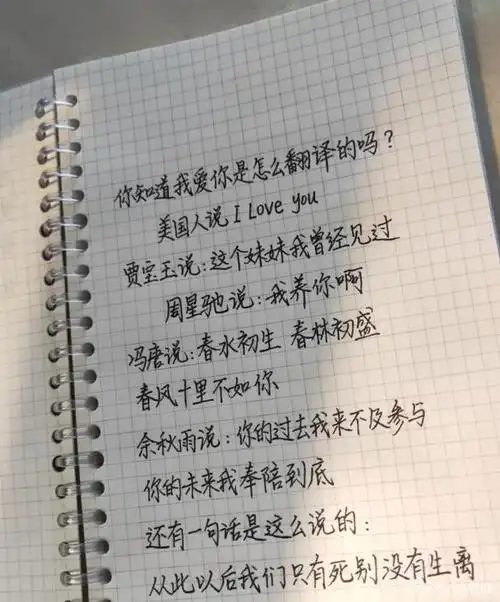 你知道我爱你是怎么翻译的吗？
美国人说 I Love you
贾宝玉说：这个妹妹我曾经见过
周星驰说：我养你啊
冯唐说：春水初生 春林初盛
春风十里不如你
余秋雨说：你的过去我来不及参与
你的未来我奉陪到底
还有一句话是这么说的：
从此以后我们只有死别没有生离